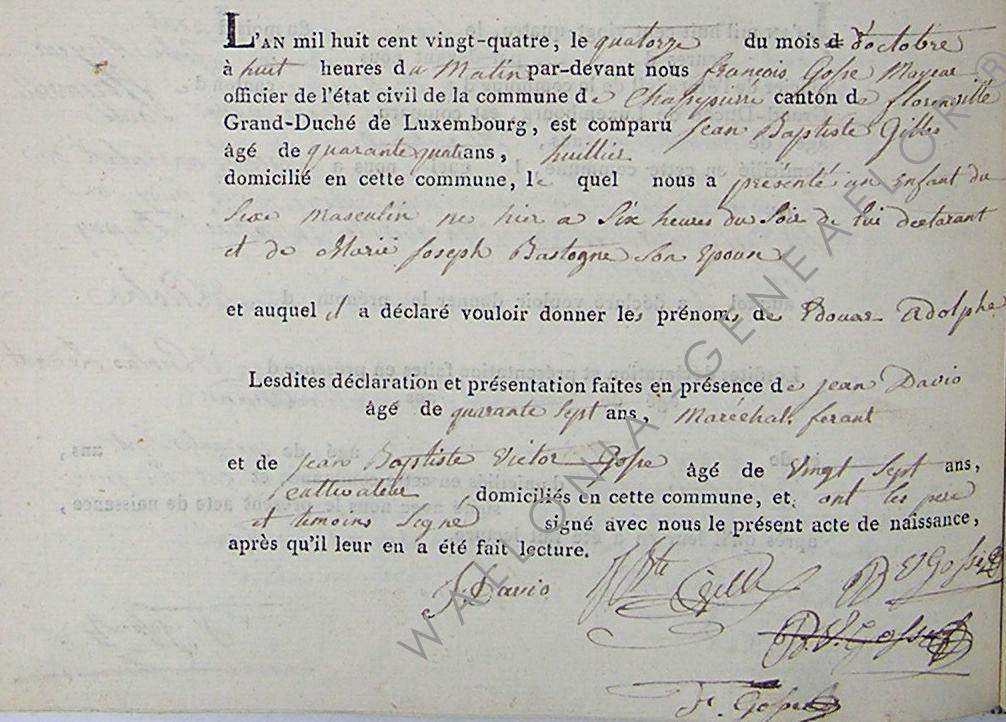 L'AN mil huit cent vingt-quatre, le quatorze du mois d'octobre
à huit heures du Matin par-devant nous françois Gosse Mayeur
officier de l'état civil de la commune de Chassepierre canton de florenville
Grand-Duché de Luxembourg, est comparu Jean Baptiste Gilles
âgé de quarante quatre ans, huillier
domicilié en cette commune, le quel nous a présenté un Enfant du
Sexe Masculin ne hier a Six heures du Soir de lui declarant
et de Marie Joseph Bastogne Son Epouse
et auquel il a déclaré vouloir donner les prénoms de Edouar Adolphe
Lesdites déclaration et présentation faites en présence de jean Davio
âgé de quarante Sept ans, Maréchal ferant
et de jean Baptiste Victor Gosse âgé de Vingt Sept ans,
cultivateur, domiciliés en cette commune, et ont les pere
et temoins Signé signé avec nous le présent acte de naissance,
après qu'il leur en a été fait lecture.
J. Davio JBte Gilles B V Gosse
B. V. Gosse
Fr. Gosse
WALLONIA GENEALOR